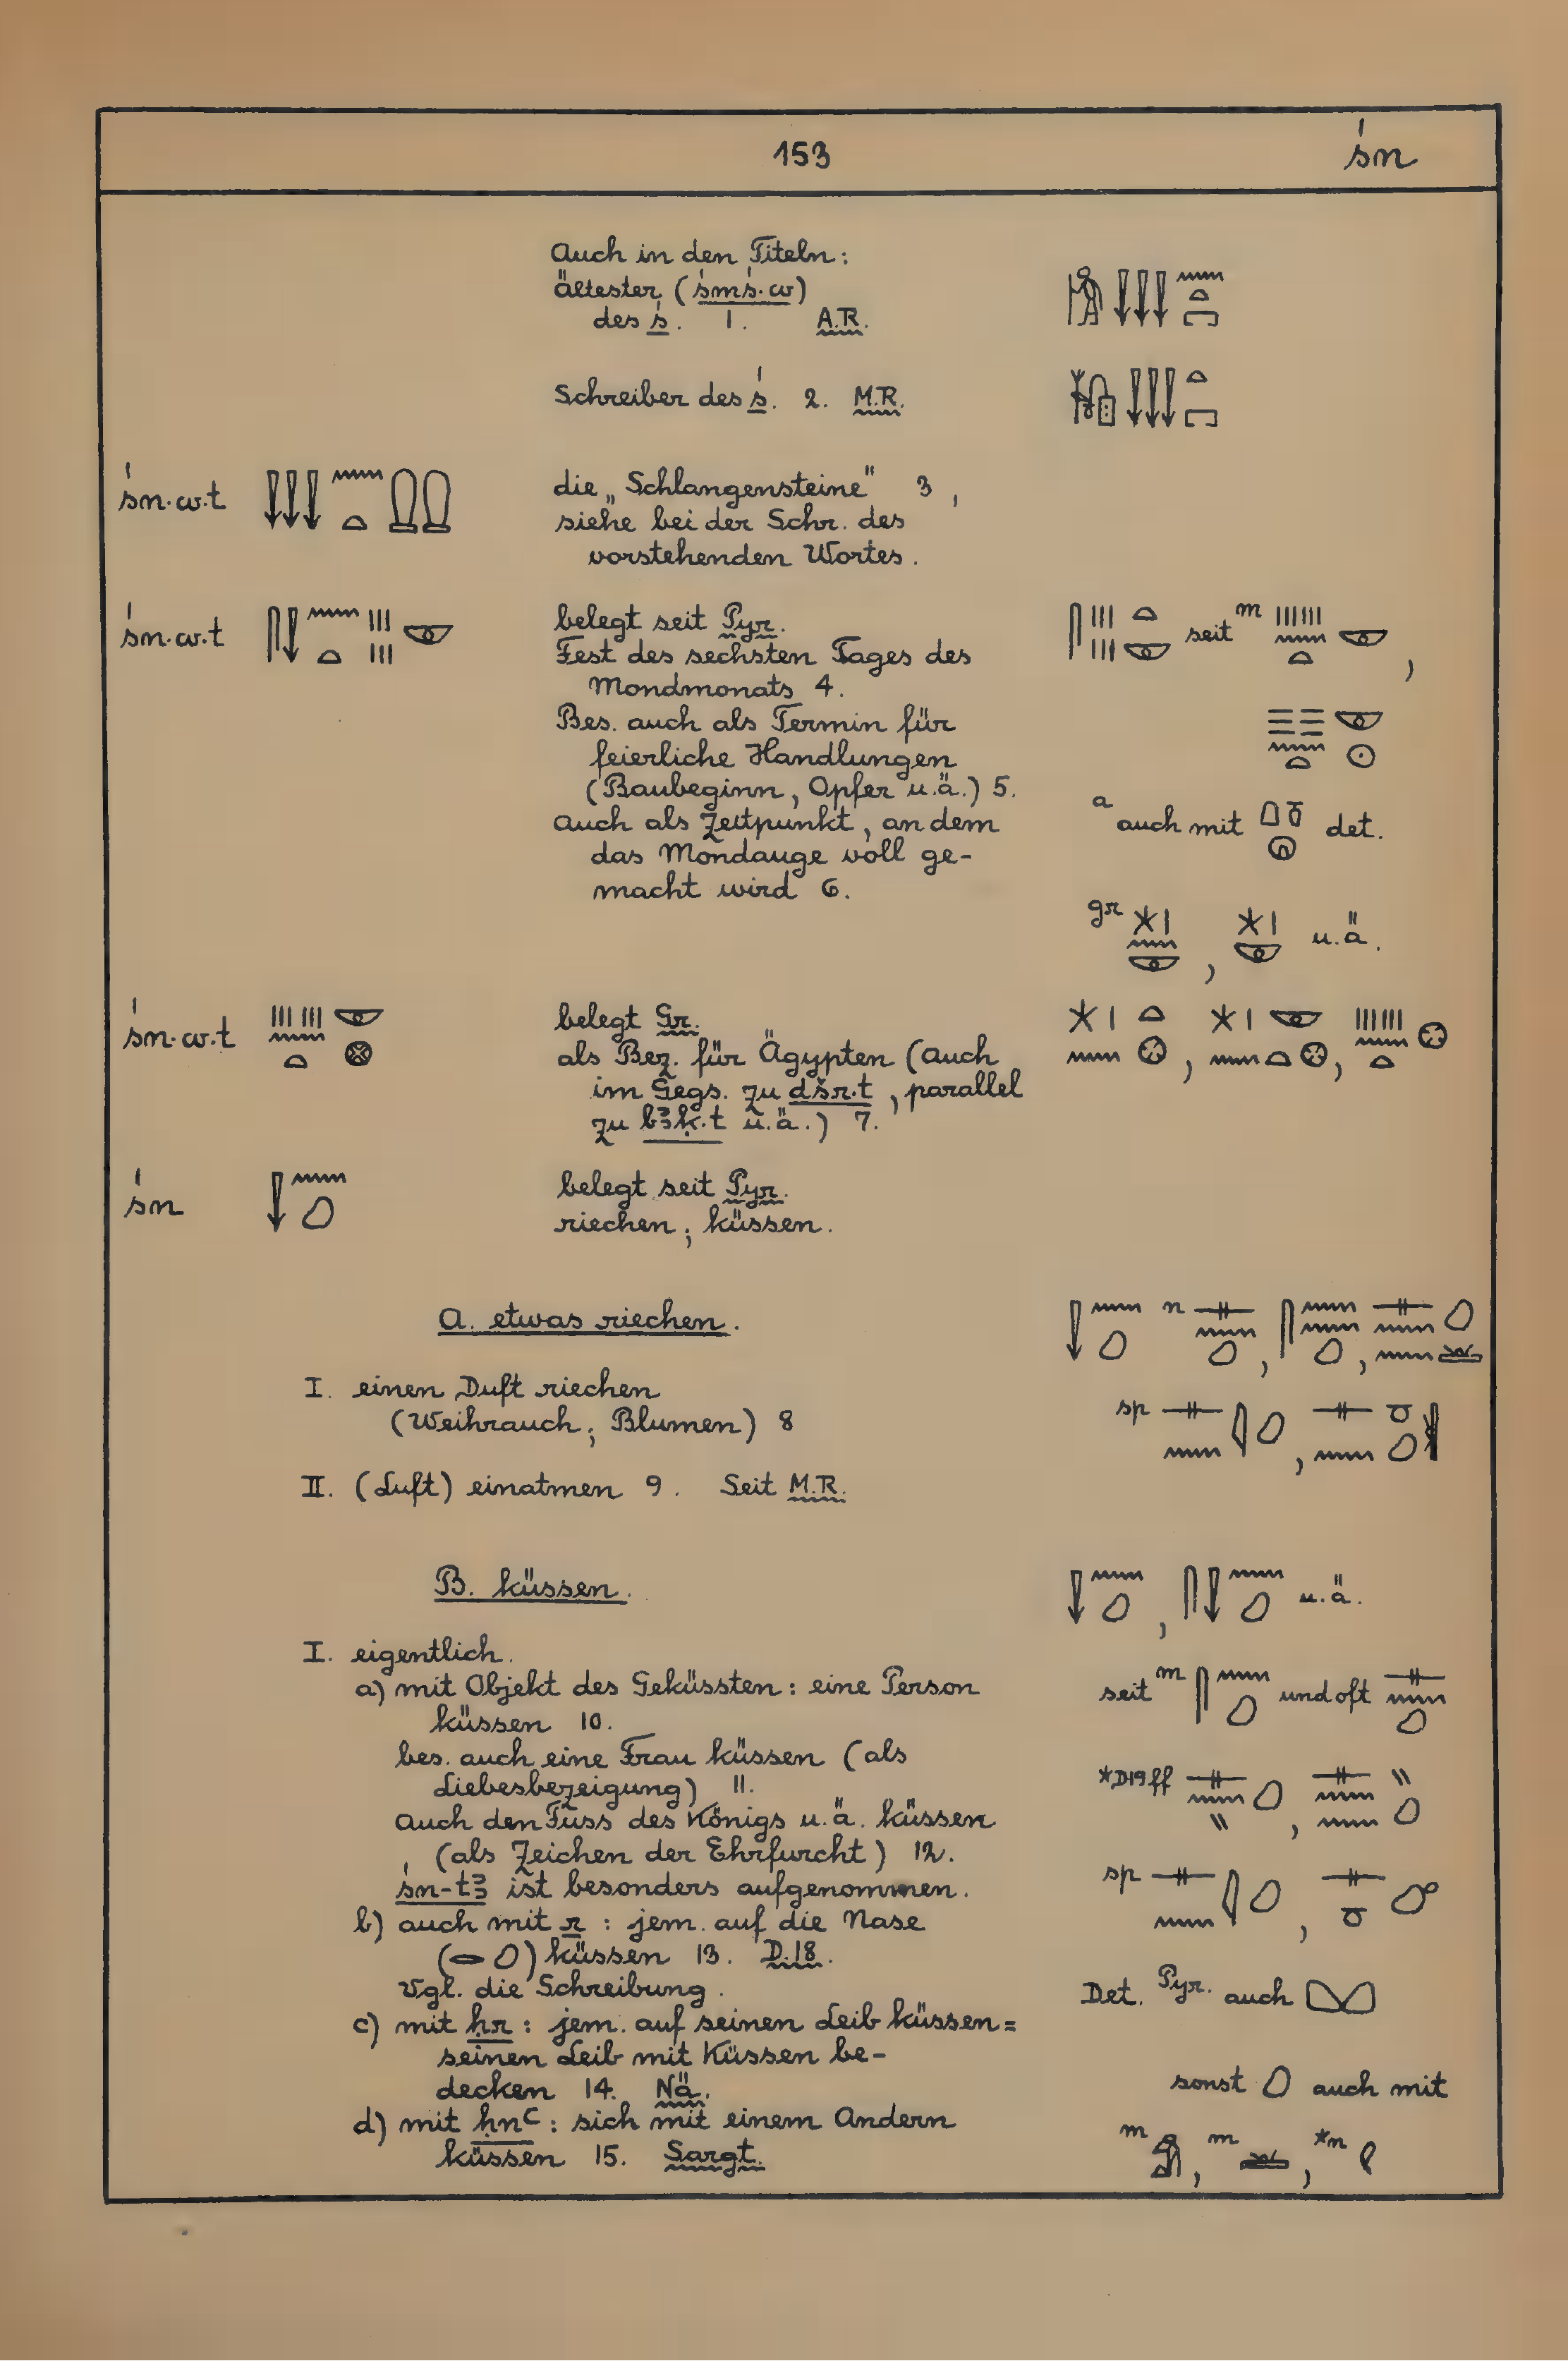 153
śn
Auch in den Titeln:
ältester (śmś·w)
des ś. 1. A.R.
Schreiber des ś. 2. M.R.
śn·w·t
die „Schlangensteine" 3,
siehe bei der Schr. des
vorstehenden Wortes.
śn·w·t
belegt seit Pyr.
Fest des sechsten Tages des
Mondmonats 4.
Bes. auch als Termin für
feierliche Handlungen
(Baubeginn, Opfer u.ä.) 5.
auch als Zeitpunkt, an dem
das Mondauge voll ge-
macht wird 6.
seit m
,
a auch mit det.
gr , u.ä.
śn·w·t
belegt Gr.
als Bez. für Ägypten (auch
im Gegs. zu dšr·t, parallel
zu bꜣḳ·t u.ä.) 7.
śn
belegt seit Pyr.
riechen; küssen.
A. etwas riechen.
n
I. einen Duft riechen
(Weihrauch; Blumen) 8
sp
II. (Luft) einatmen 9. Seit M.R.
B. küssen.
u.ä.
I. eigentlich.
a) mit Objekt des Geküssten: eine Person
küssen 10.
bes. auch eine Frau küssen (als
Liebesbezeigung) 11.
auch den Fuss des Königs u.ä. küssen
(als Zeichen der Ehrfurcht) 12.
śn-tꜣ ist besonders aufgenommen.
b) auch mit r: jem. auf die Nase
( ) küssen 13. D.18.
Vgl. die Schreibung.
c) mit ḥr: jem. auf seinen Leib küssen =
seinen Leib mit Küssen be-
decken 14. Nä.
d) mit ḥnꜥ: sich mit einem Andern
küssen 15. Sargt.
seit m und oft
*D19ff
sp
Det. Pyr. auch
sonst auch mit
m , m , *n